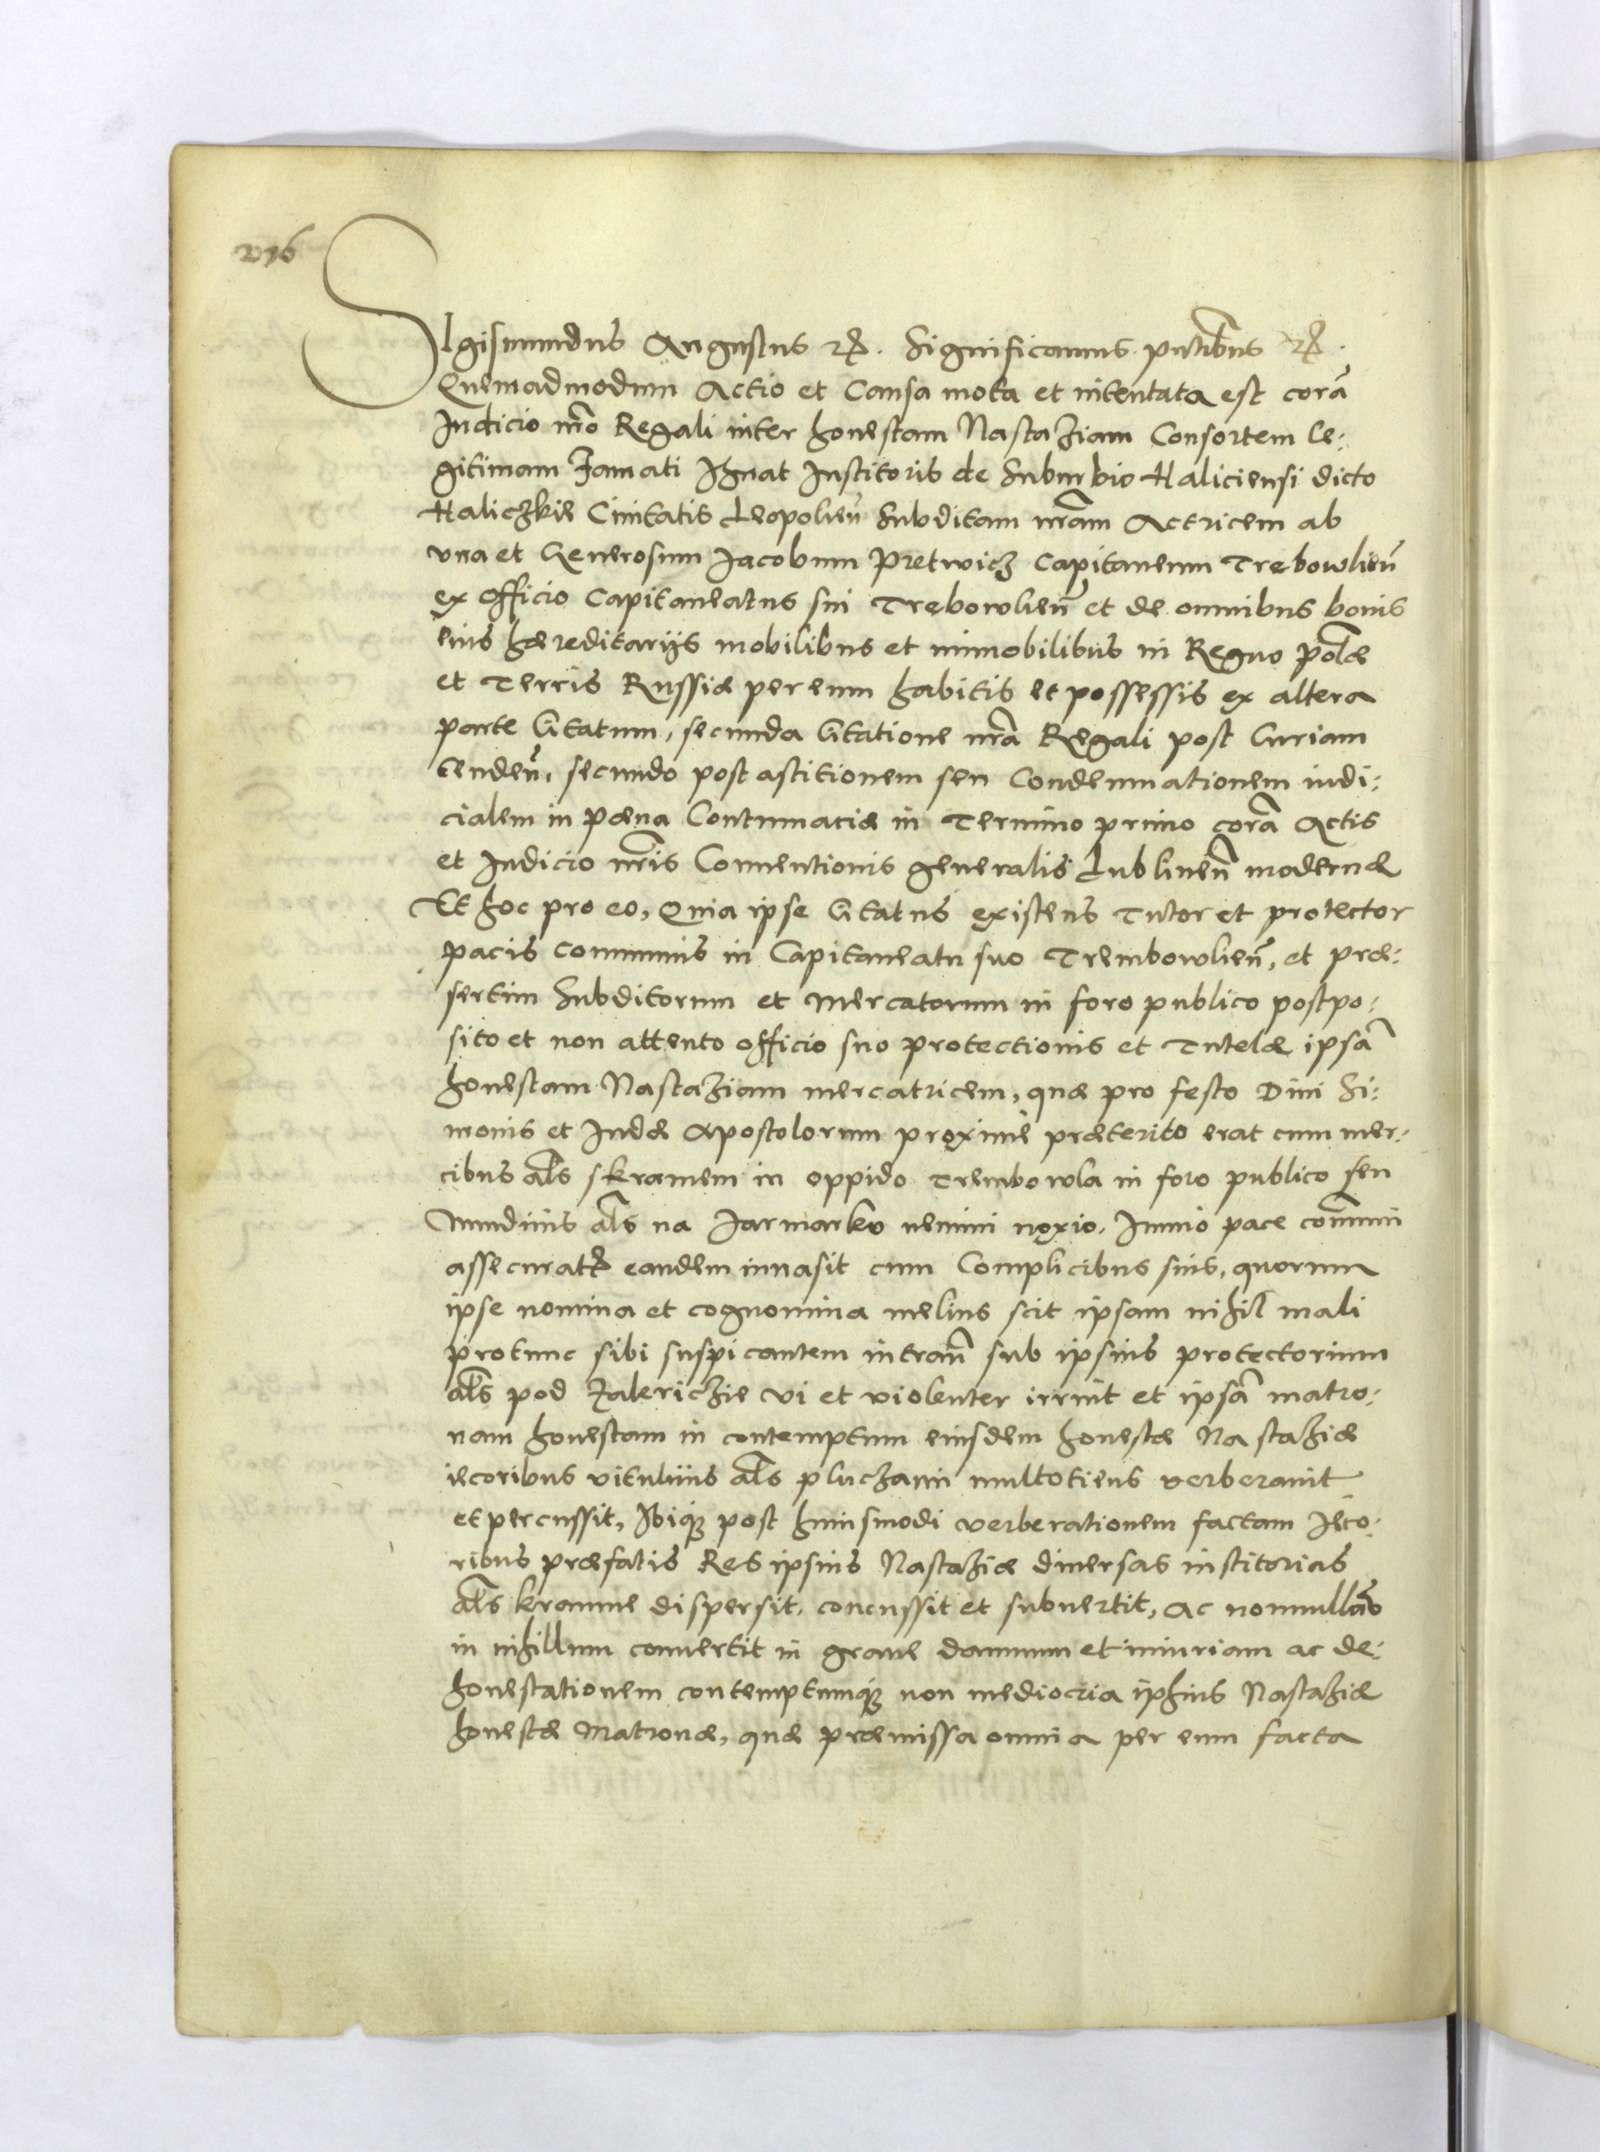 216
Sigismundus Augustus etc. Significamus pntibus etc.
Quemadmodum Actio et Causa mota et intentata est corā
Iudicio nro Regali inter honestam Nastaziam Consortem le-
gitimam Famati Ihnat Institoris de Suburbio Haliciensi dicto
Haliczkie Ciuitatis Leopolien̄ Subditam nram Actricem ab
vna et Generosum Iacobum Pretwicz Capitaneum Trebowlien̄
ex officio Capitaneatus sui Trebowlien̄ et de omnibus bonis
eius hæreditarijs mobilibus et immobilibus in Regno Polæ
et Terris Russiæ per eum habitis et possessis ex altera
parte Citatum, secunda Citatione nra Regali post Curiam
tenden̄, secundo post astitionem seu Condemnationem iudi-
cialem in pæna Contumaciæ in Termino primo corā Actis
et Iudicio nris Conuentionis generalis Lublinen̄ modernæ
Et hoc pro eo, Quia ipse Citatus existens Tutor et protector
pacis communis in Capitaneatu suo Trembowlien̄, et præ-
sertim Subditorum et mercatorum in foro publico postpo-
sito et non attento officio suo protectionis et Tutelæ ipsā
honestam Nastaziam mercatricem, quæ pro festo Diui Si-
monis et Iudæ Apostolorum proxime præterito erat cum mer-
cibus als skramem in oppido Trembowla in foro publico seu
Nundinis als na Iarmarku nemini noxio, Immo pace comuni
assecurata eandem inuasit cum Complicibus suis, quorum
ipse nomina et cognomina melius scit ipsam nihil mali
protunc sibi suspicantem intran̄ sub ipsius protectorium
als pod Zalericzie vi et violenter irruit et ipsā matro-
nam honestam in contemptum eiusdem honestæ Nastaziæ
iecoribus vitulinis als pluczami multotiens verberauit
et percussit, Ibiq3 post huiusmodi verberationem factam Ieco-
ribus præfatis Res ipsius Nastaziæ diuersas institorias
als kramne dispersit, concussit et subuertit, ac nonnullas
in nihillum conuertit in graue damnum et iniuriam ac de-
honestationem contemptumq3 non mediocria ipsius Nastaziæ
honestæ Matronæ, quæ præmissa omnia per eum facta